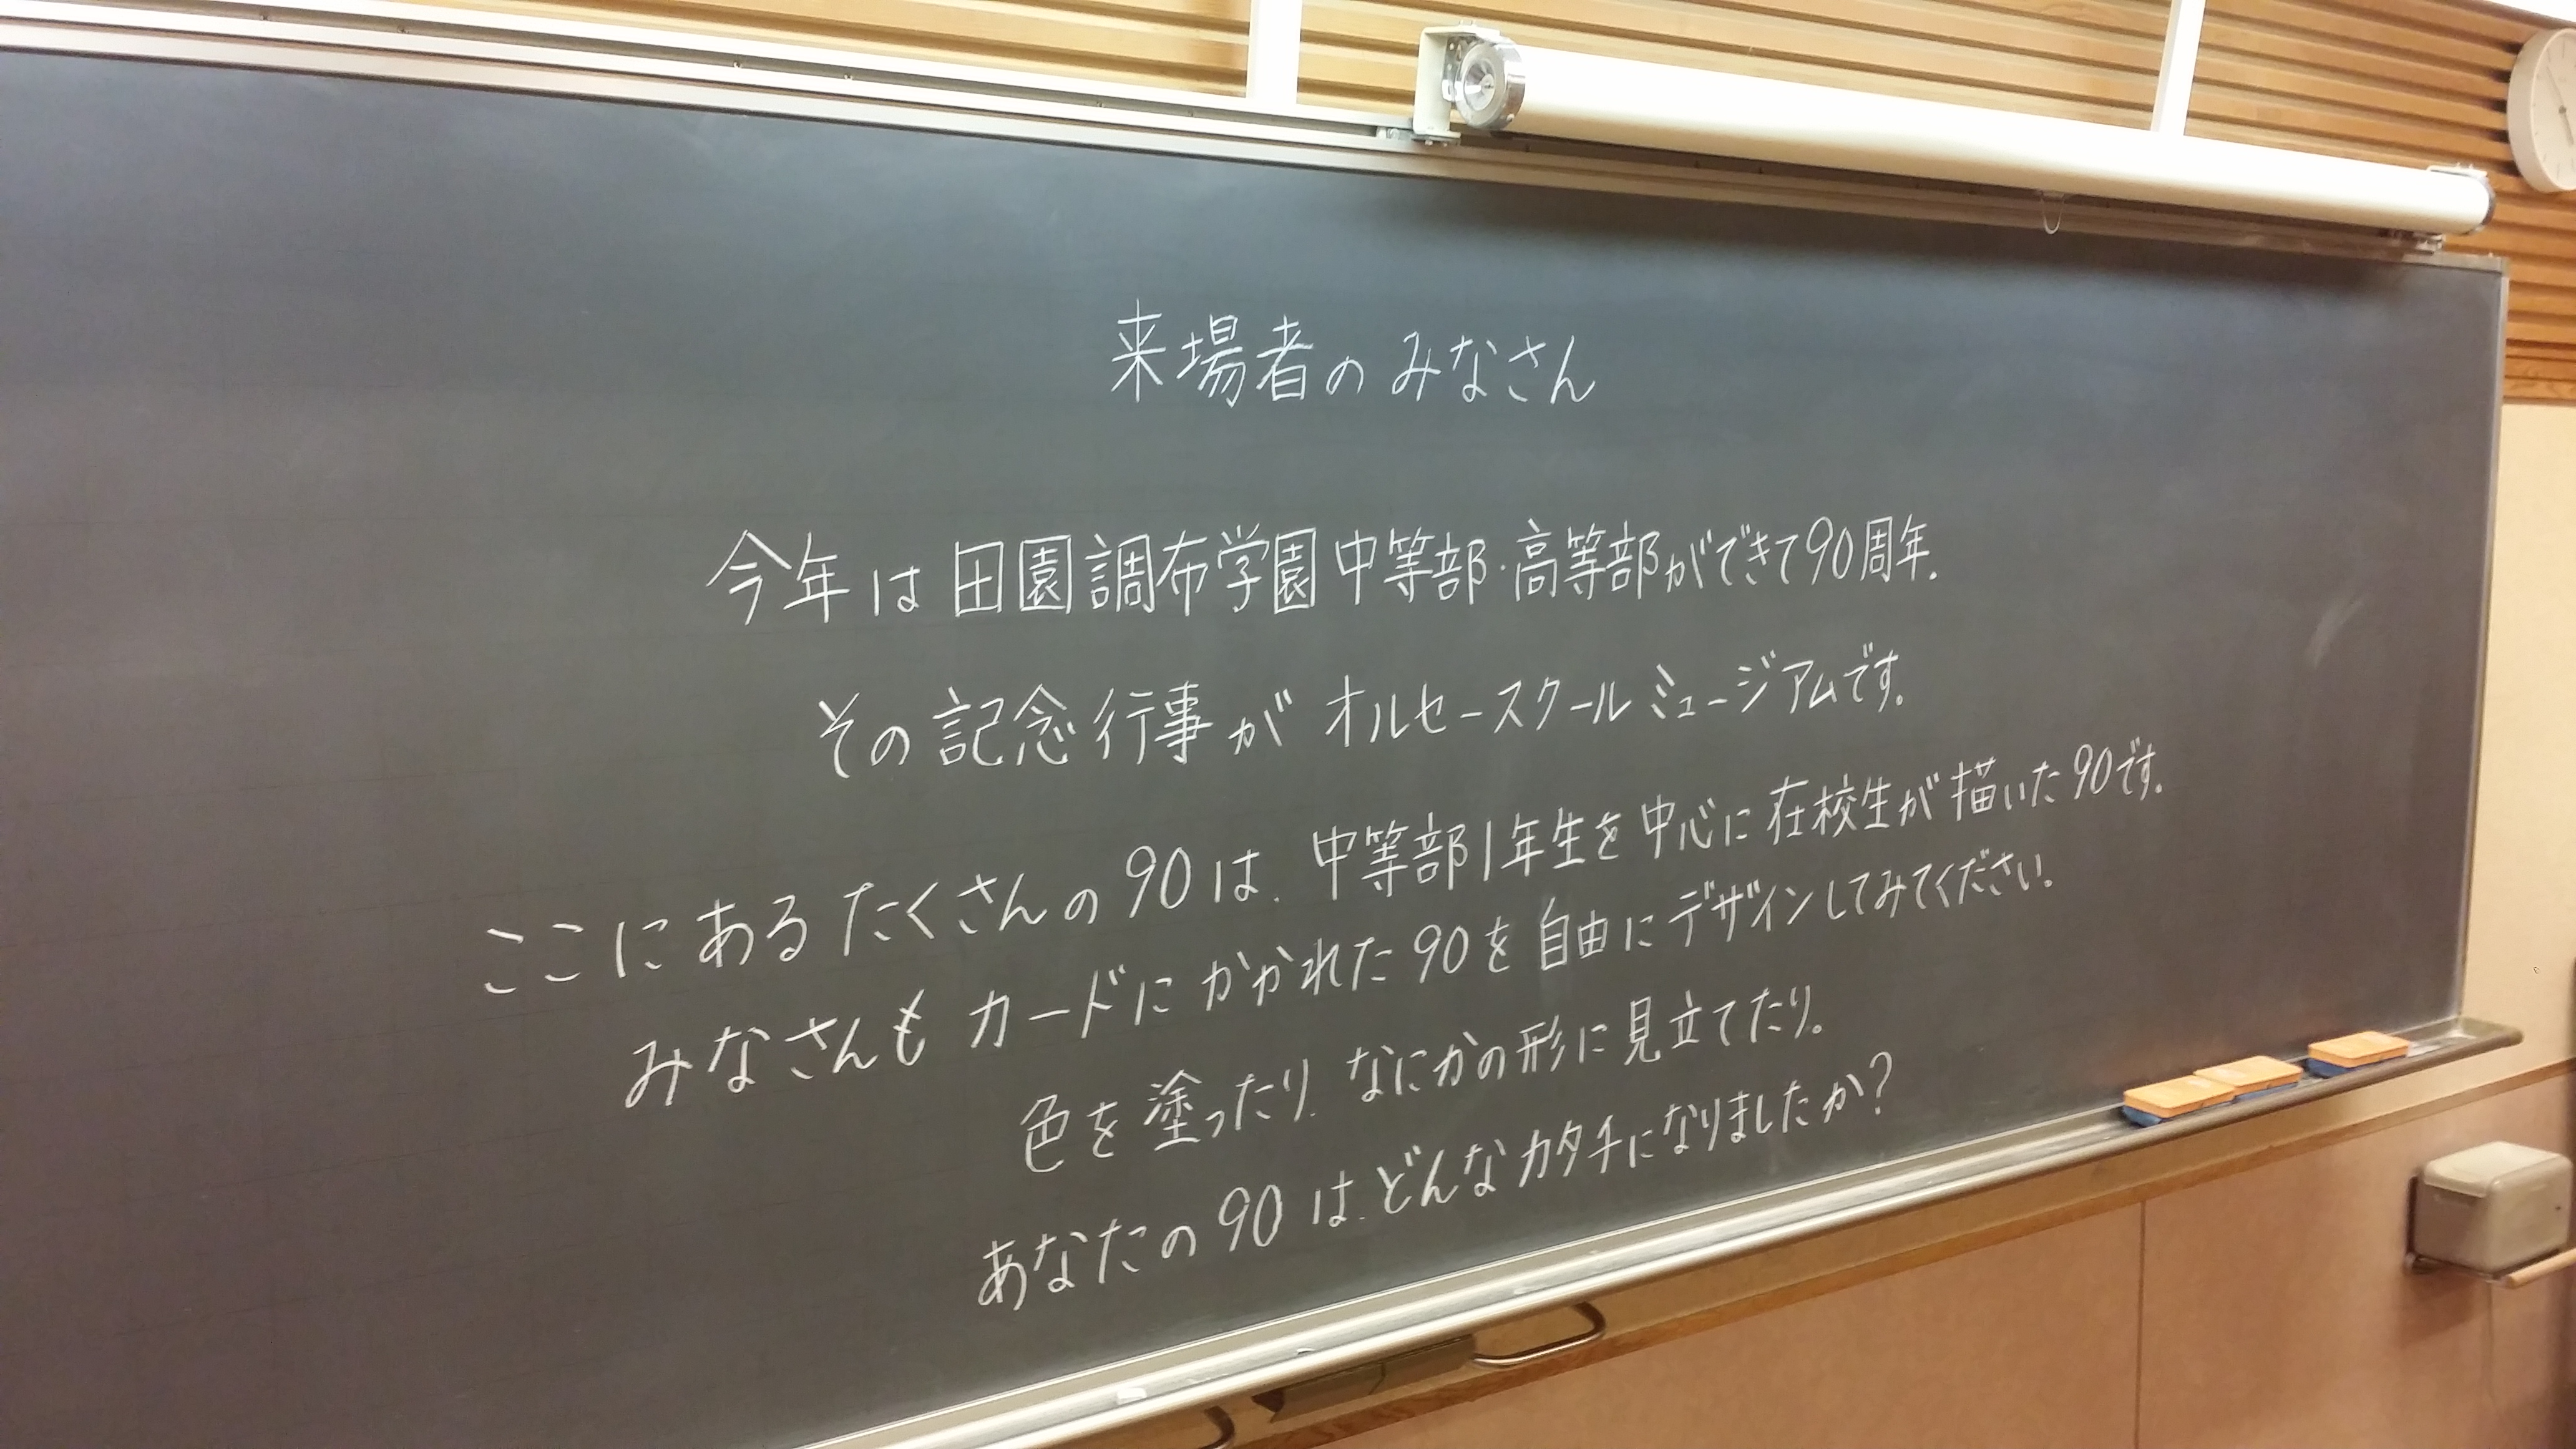 来場者のみなさん
今年は田園調布学園中等部・高等部ができて90周年.
その記念行事がオルセースクールミュージアムです。
ここにあるたくさんの90は、中等部1年生を中心に在校生が描いた90です。
みなさんもカードにかかれた90を自由にデザインしてみてください。
色を塗ったり、なにかの形に見立てたり。
あなたの90は、どんなカタチになりましたか?